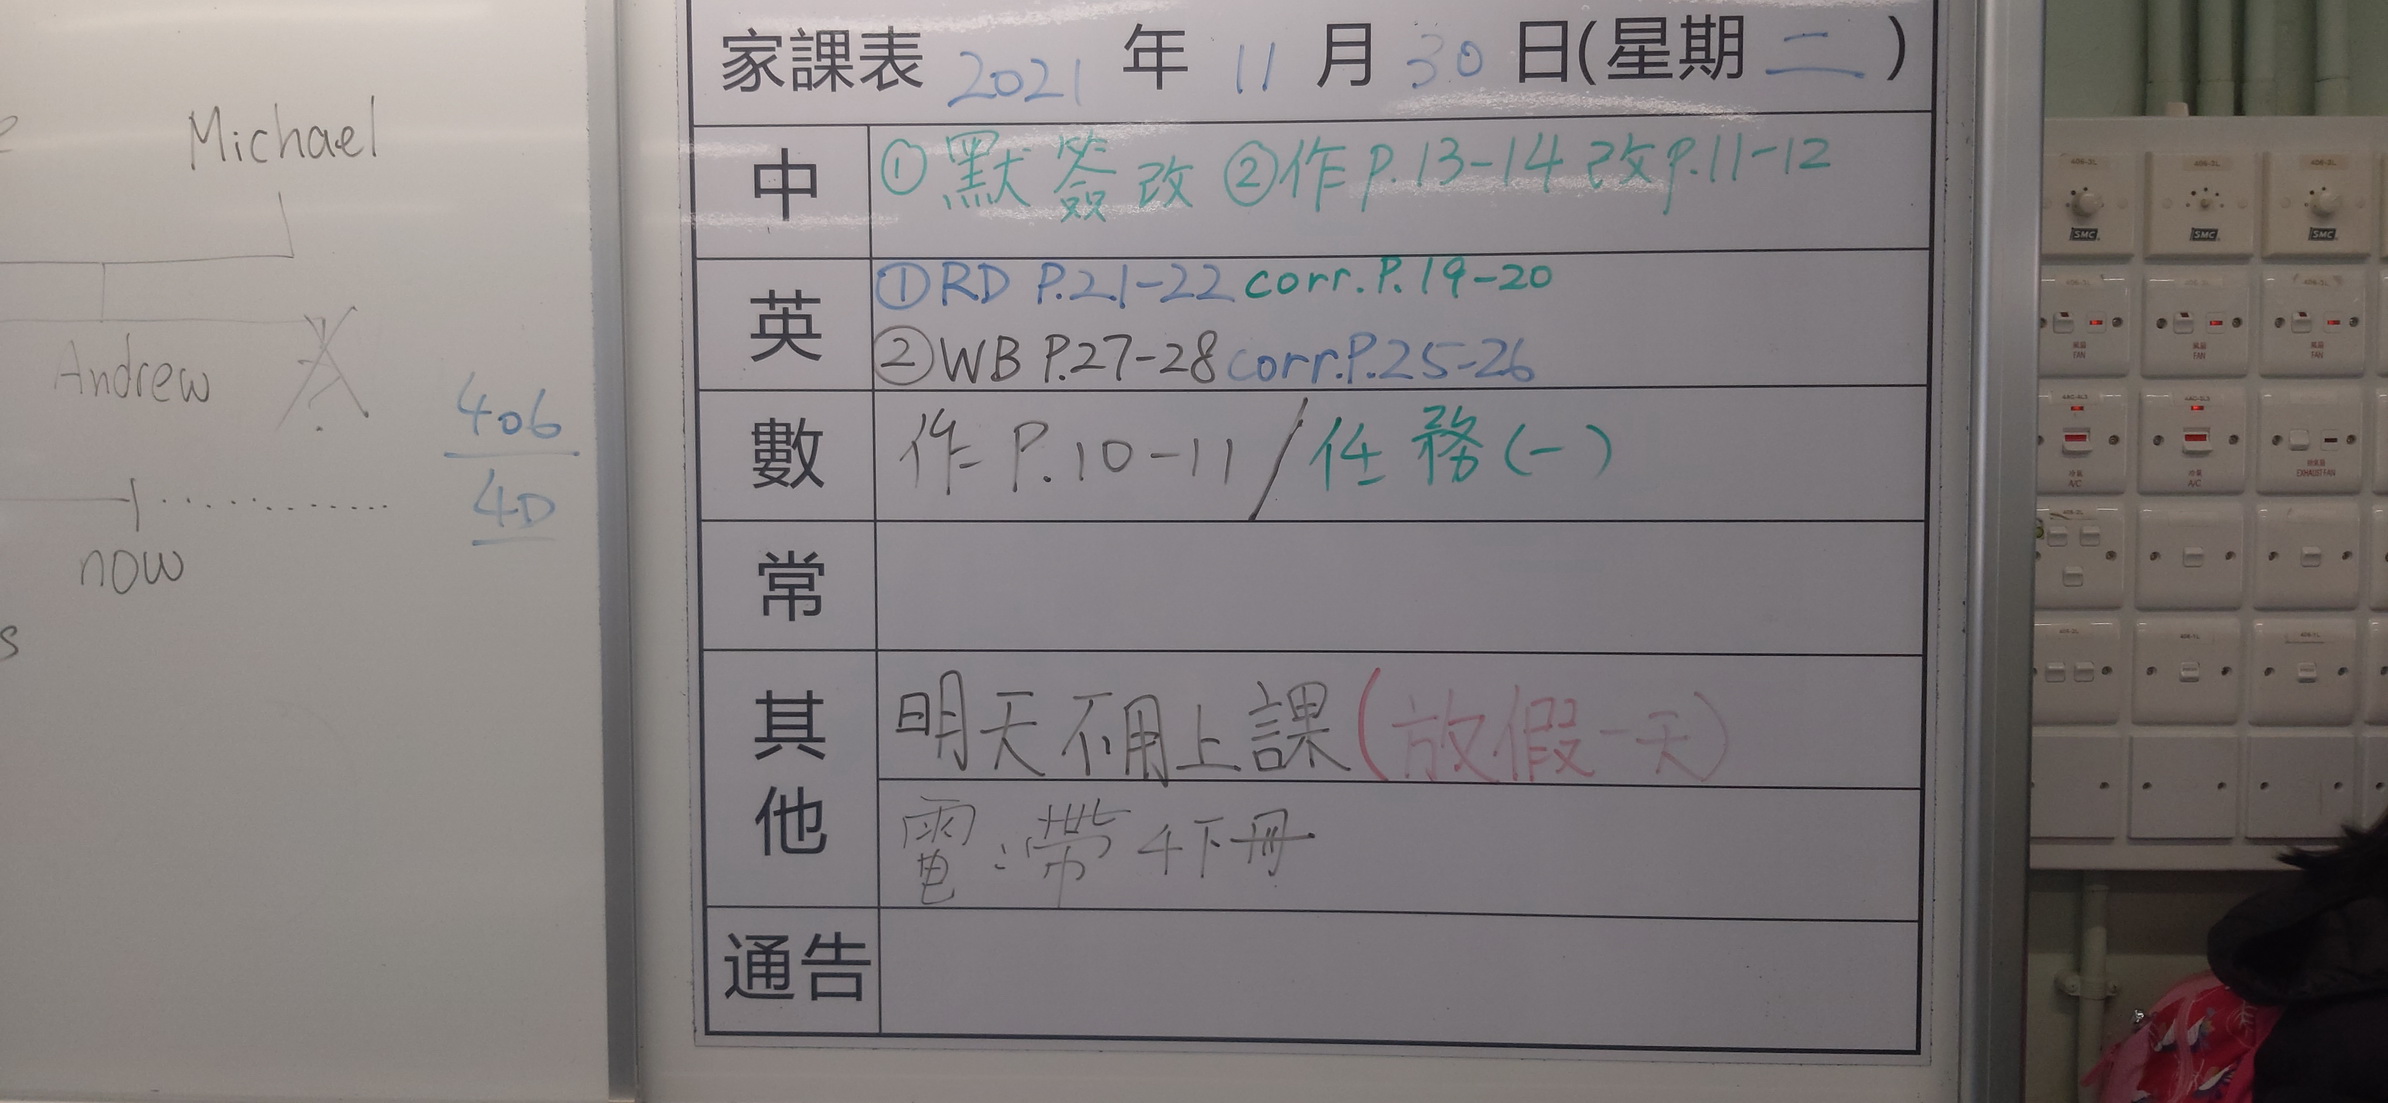 Michael
Andrew
now
s
406
4D
家課表 2021 年 11 月 30 日(星期 二 )
中 ①默簽改 ②作P.13-14 改P.11-12
英 ①RD P.21-22 corr.P.19-20
②WB P.27-28 corr.P.25-26
數 作P.10-11/任務(一)
常
其他 明天不用上課(放假一天)
電:帶4下冊
通告
SMC SMC SMC
風扇 風扇 風扇
FAN FAN FAN
冷氣 冷氣
A/C A/C EXHAUST FAN